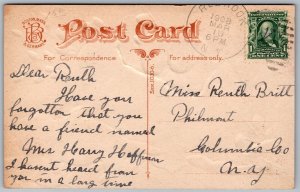 Post Card
For Correspondence
For address only.
1908
MAR
6 PM
N.Y.
1
Dear Ruth
Have you
forgotten that you
have a friend named
Mrs Harry Hoffman
I havent heard from
you in a long time
Miss Ruth Britt
Philmont
Columbia Co
N.Y